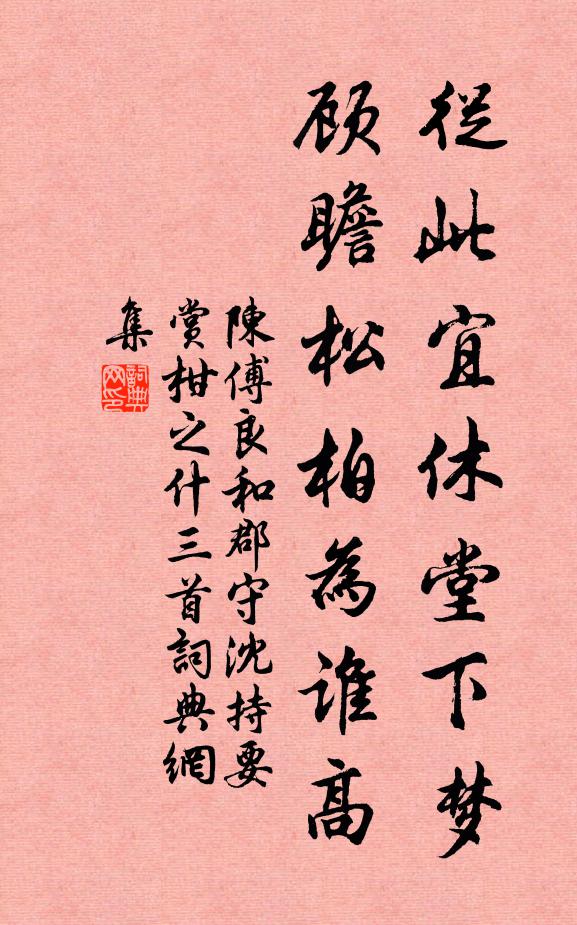 從此宜休堂下梦
顾瞻松柏為谁高
陳傅良和郡守沈持要
賞柑之什三首詞典網
集
詞典
网印